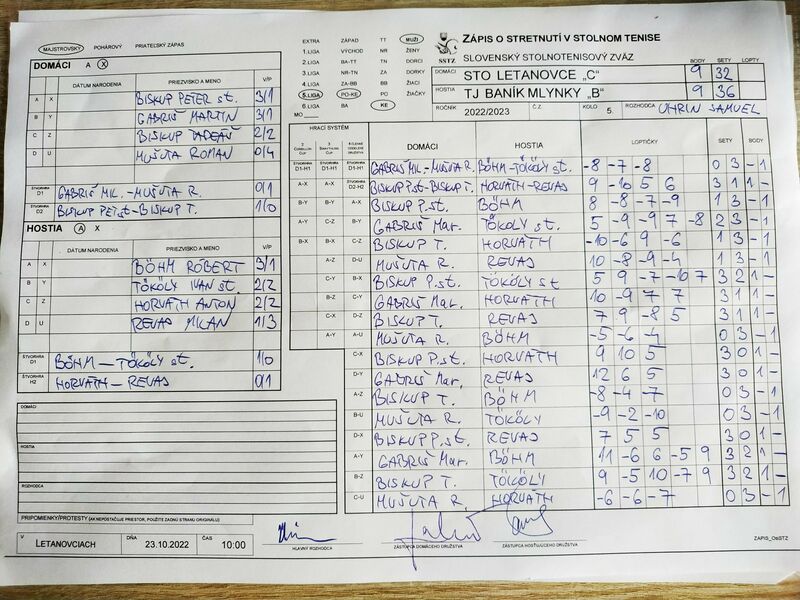 MAJSTROVSKÝ POHÁROVÝ PRIATEĽSKÝ ZÁPAS
DOMÁCI A X
DÁTUM NARODENIA PRIEZVISKO A MENO V/P
A X BISKUP PETER st. 3/1
B Y GABRIŠ MARTIN 3/1
C Z BISKUP TADEÁŠ 2/2
D U MUŠUTA ROMAN 0/4
ŠTVORHRA D1 GABRIŠ MIL. - MUŠUTA R. 0/1
ŠTVORHRA D2 BISKUP PET. st - BISKUP T. 1/0
HOSTIA A X
DÁTUM NARODENIA PRIEZVISKO A MENO V/P
A X BÖHM RÓBERT 3/1
B Y TÖKÖLY IVAN st. 2/2
C Z HORVÁTH ANTON 2/2
D U REVAJ MILAN 1/3
ŠTVORHRA D1 BÖHM - TÖKÖLY st. 1/0
ŠTVORHRA H2 HORVÁTH - REVAJ 0/1
DOMÁCI
HOSTIA
ROZHODCA
PRIPOMIENKY/PROTESTY (AK NEPOSTAČUJE PRIESTOR, POUŽITE ZADNÚ STRANU ORIGINÁLU)
V LETANOVCIACH DŇA 23.10.2022 ČAS 10:00
EXTRA ZÁPAD TT MUŽI
1.LIGA VÝCHOD NR ŽENY
2.LIGA BA-TT TN DORCI
3.LIGA NR-TN ZA DORKY
4.LIGA ZA-BB BB ŽIACI
5.LIGA PO-KE PO ŽIAČKY
6.LIGA BA KE
MO
SSTZ
ZÁPIS O STRETNUTÍ V STOLNOM TENISE
SLOVENSKÝ STOLNOTENISOVÝ ZVÄZ
BODY SETY LOPTY
DOMÁCI STO LETANOVCE „C" 9 32
HOSTIA TJ BANÍK MLYNKY „B" 9 36
ROČNÍK 2022/2023 Č.Z. KOLO 5. ROZHODCA UHRIN SAMUEL
HRACÍ SYSTÉM
DOMÁCI HOSTIA LOPTIČKY SETY BODY
D1-H1 D1-H1 D1-H1 GABRIŠ MIL. - MUŠUTA R. BÖHM - TÖKÖLY st. -8 -7 -8 0 3 - 1
A-X A-X D2-H2 BISKUP P.st - BISKUP T. HORVÁTH - REVAJ 9 -10 5 6 3 1 1 -
B-Y B-Y A-X BISKUP P. st. BÖHM 8 -8 -7 -9 1 3 - 1
A-Y C-Z B-Y GABRIŠ Mar. TÖKÖLY st. 5 -9 -9 7 -8 2 3 - 1
B-X B-X C-Z BISKUP T. HORVÁTH -10 -6 9 -6 1 3 - 1
A-Z D-U MUŠUTA R. REVAJ 10 -8 -9 -4 1 3 - 1
C-Y B-X BISKUP P. st. TÖKÖLY st 5 9 -7 -10 7 3 2 1 -
B-Z C-Y GABRIŠ Mar. HORVÁTH 10 -9 7 7 3 1 1 -
C-X D-Z BISKUP T. REVAJ 7 9 -8 5 3 1 1 -
A-Y A-U MUŠUTA R. BÖHM -5 -6 -4 0 3 - 1
C-X BISKUP P. st. HORVÁTH 9 10 5 3 0 1 -
D-Y GABRIŠ Mar. REVAJ 12 6 5 3 0 1 -
A-Z BISKUP T. BÖHM -8 -4 -7 0 3 - 1
B-U MUŠUTA R. TÖKÖLY -9 -2 -10 0 3 - 1
D-X BISKUP P. st. REVAJ 7 5 5 3 0 1 -
A-Y GABRIŠ Mar. BÖHM 11 -6 6 -5 9 3 2 1 -
B-Z BISKUP T. TÖKÖLY 9 -5 10 -7 9 3 2 1 -
C-U MUŠUTA R. HORVÁTH -6 -6 -7 0 3 - 1
HLAVNÝ ROZHODCA ZÁSTUPCA DOMÁCEHO DRUŽSTVA ZÁSTUPCA HOSŤUJÚCEHO DRUŽSTVA
ZAPIS_OsSTZ